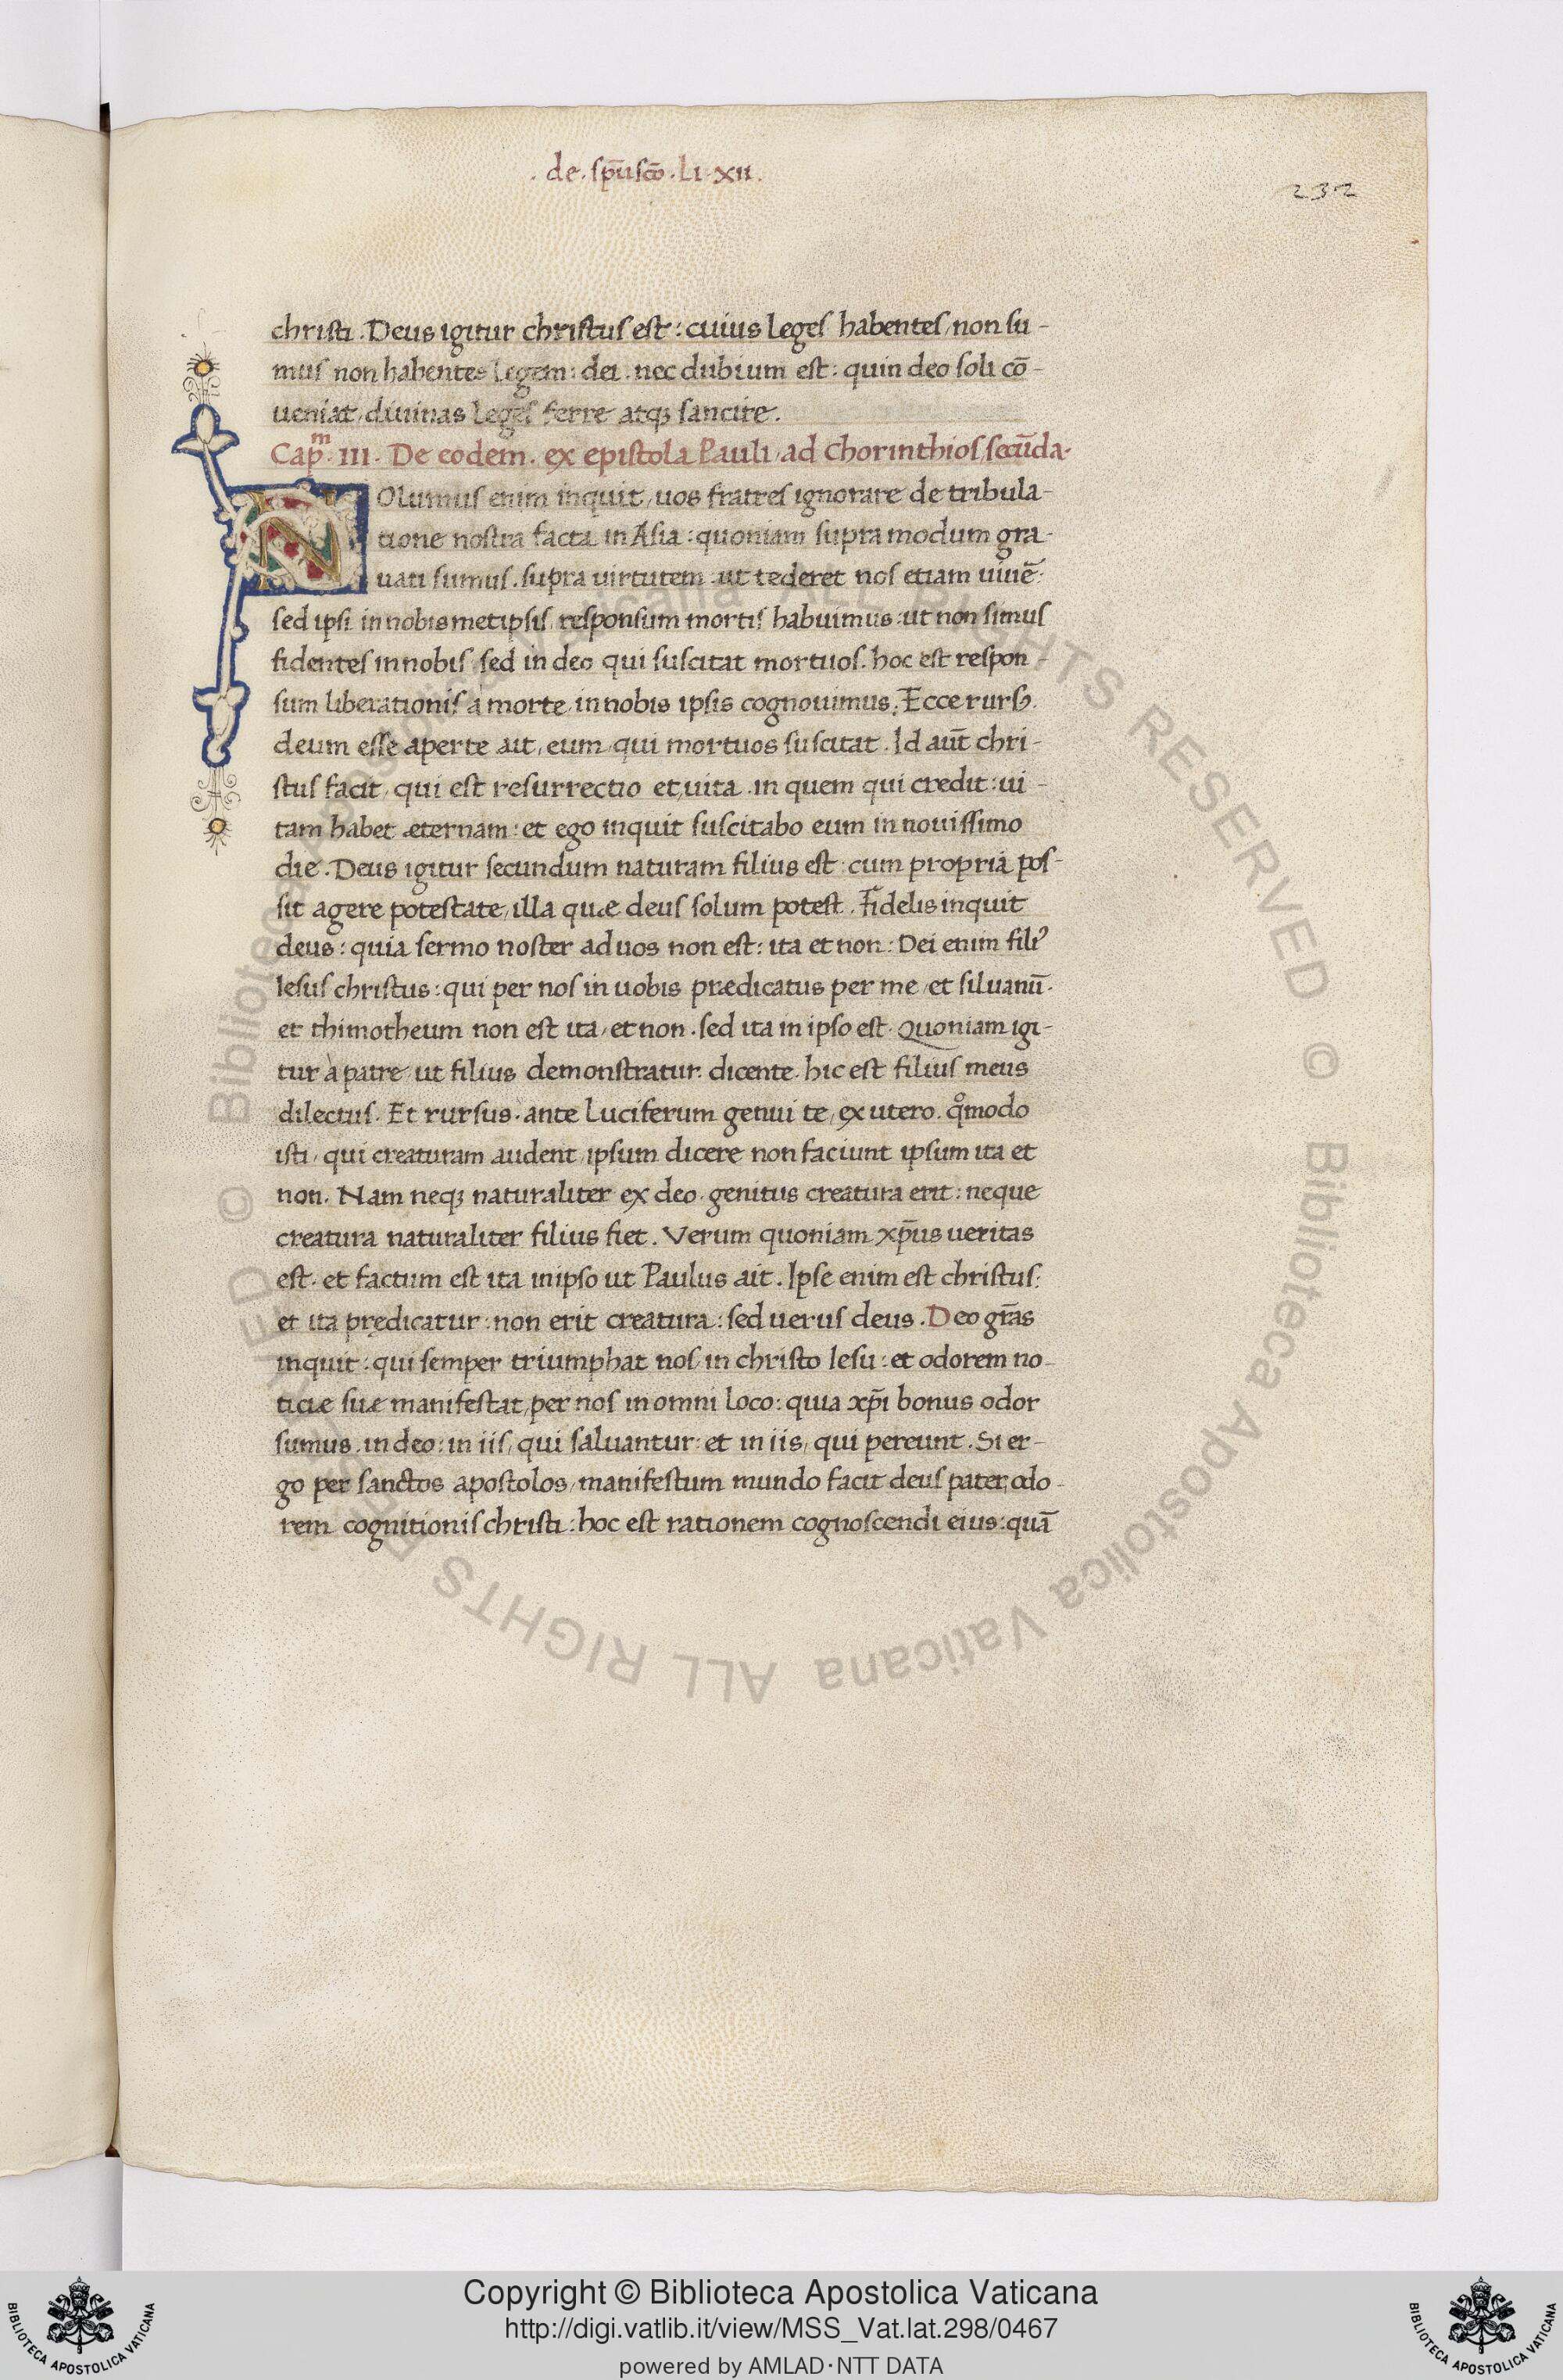 . de . sp̄usc̄o . Li . xii .
232
christi . Deus igitur christus est : cuius leges habentes / non su-
mus non habentes legem : dei . nec dubium est : quin deo soli cō-
ueniat / diuinas leges ferre atqꝫ sancire .
Cap.ᵐ III . De eodem . ex epistola Pauli / ad Chorinthios / secūda .
NOlumus enim inquit / uos fratres ignorare de tribula-
tione nostra facta in Asia : quoniam supra modum gra-
uati sumus . supra uirtutem . ut tederet nos etiam uiuē :
sed ipsi in nobismetipsis / responsum mortis habuimus : ut non simus
fidentes in nobis / sed in deo qui suscitat mortuos . hoc est respon-
sum liberationis à morte / in nobis ipsis cognouimus . Ecce rursꝰ .
deum esse aperte ait / eum / qui mortuos suscitat . Id aut̄ chri-
stus facit / qui est resurrectio et uita . in quem qui credit : ui-
tam habet æternam : et ego inquit suscitabo eum in nouissimo
die . Deus igitur secundum naturam filius est : cum propria pos-
sit agere potestate / illa quæ deus solum potest . Fidelis inquit
deus : quia sermo noster ad uos non est : ita et non : Dei enim filiꝰ
Iesus christus : qui per nos in uobis prædicatus per me / et siluanū .
et thimotheum non est ita / et non . sed ita in ipso est . Quoniam igi-
tur à patre / ut filius demonstratur . dicente . hic est filius meus
dilectus . Et rursus . ante Luciferum genui te / ex utero . qͦmodo
isti / qui creaturam audent / ipsum dicere non faciunt ipsum ita et
non . Nam neqꝫ naturaliter ex deo . genitus creatura erit : neque
creatura naturaliter filius fiet . Verum quoniam xp̄us ueritas
est . et factum est ita in ipso ut Paulus ait . Ipse enim est christus :
et ita prędicatur : non erit creatura : sed uerus deus . Deo gr̄as
inquit : qui semper triumphat nos / in christo Iesu : et odorem no-
ticiæ suæ manifestat / per nos in omni loco : quia xp̄i bonus odor
sumus . in deo : in iis / qui saluantur : et in iis / qui pereunt . Si er-
go per sanctos apostolos / manifestum mundo facit deus pater / odo-
rem cognitionis christi : hoc est rationem cognoscendi eius : quā
© Biblioteca Apostolica Vaticana ALL RIGHTS RESERVED © Biblioteca Apostolica Vaticana ALL RIGHTS RESERVED
Copyright © Biblioteca Apostolica Vaticana
http://digi.vatlib.it/view/MSS_Vat.lat.298/0467
powered by AMLAD·NTT DATA
BIBLIOTECA APOSTOLICA VATICANA
BIBLIOTECA APOSTOLICA VATICANA